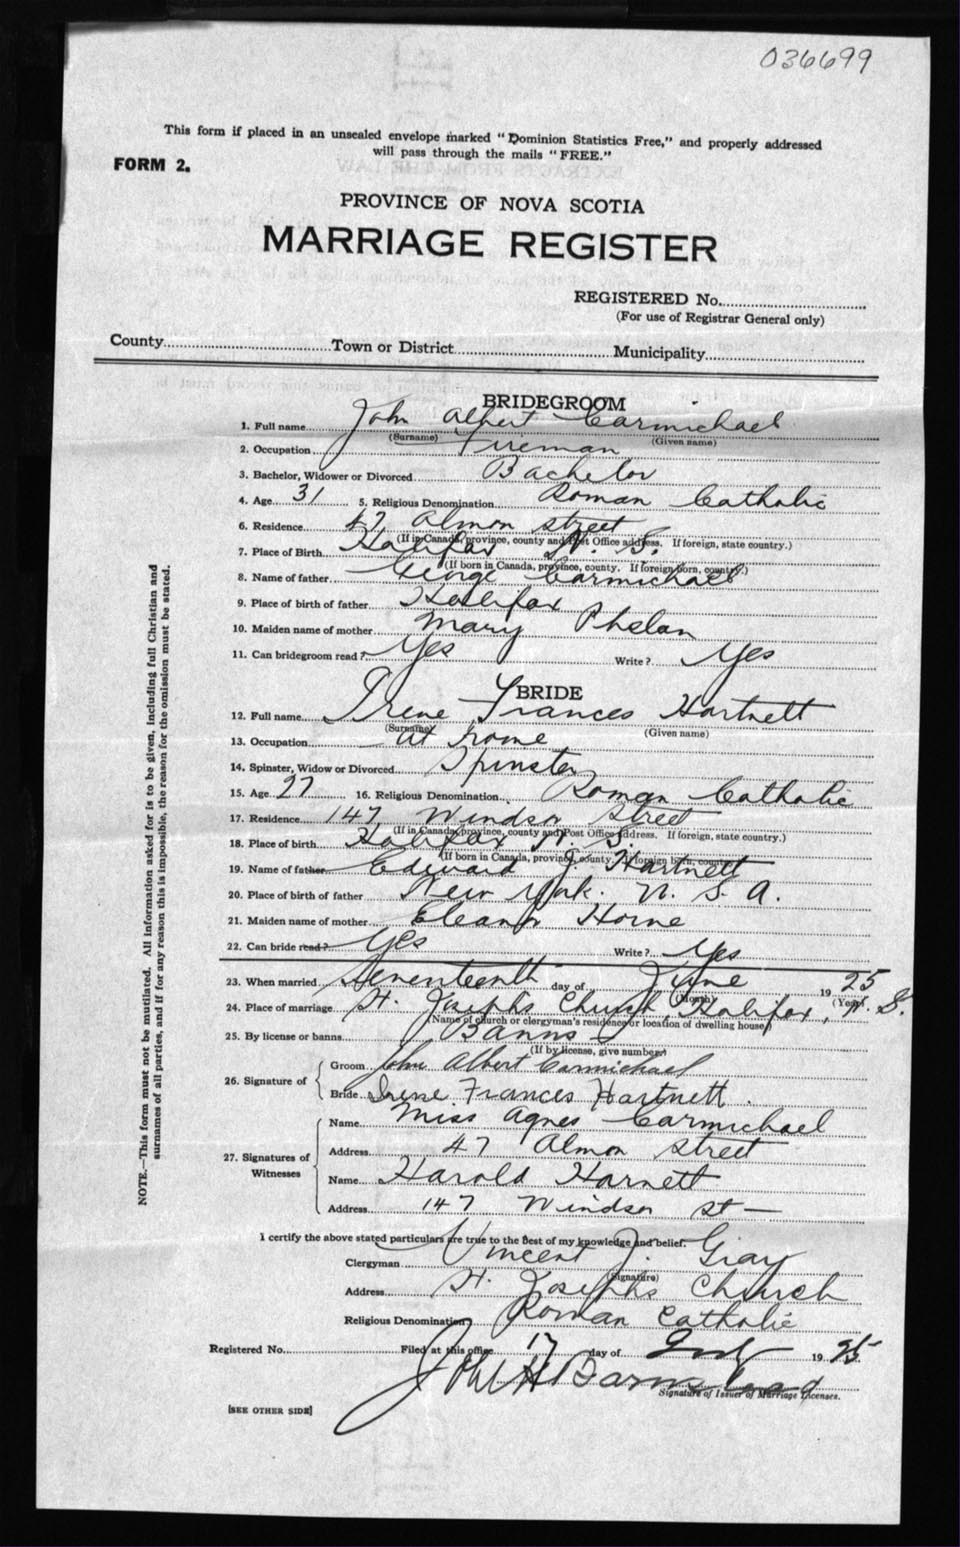 036699
This form if placed in an unsealed envelope marked "Dominion Statistics Free," and properly addressed
will pass through the mails "FREE."
FORM 2.
PROVINCE OF NOVA SCOTIA
MARRIAGE REGISTER
REGISTERED No.
(For use of Registrar General only)
County Town or District Municipality
BRIDEGROOM
1. Full name John Albert Carmichael
(Surname) (Given name)
2. Occupation Fireman
3. Bachelor, Widower or Divorced Bachelor
4. Age 31 5. Religious Denomination Roman Catholic
6. Residence 47 Almon Street
(If in Canada, province, county and Post Office address. If foreign, state country.)
7. Place of Birth Halifax N. S.
(If born in Canada, province, county. If foreign born, country.)
8. Name of father George Carmichael
9. Place of birth of father Halifax
10. Maiden name of mother Mary Phelan
11. Can bridegroom read? Yes Write? Yes
BRIDE
12. Full name Irene Frances Hartnett
(Surname) (Given name)
13. Occupation At home
14. Spinster, Widow or Divorced Spinster
15. Age 27 16. Religious Denomination Roman Catholic
17. Residence 147 Windsor Street
(If in Canada, province, county and Post Office address. If foreign, state country.)
18. Place of birth Halifax N. S.
(If born in Canada, province, county. If foreign born, country)
19. Name of father Edward J. Hartnett
20. Place of birth of father New York. U. S. A.
21. Maiden name of mother Eleanor Horne
22. Can bride read? Yes Write? Yes
23. When married Seventeenth day of June 1925
(Month) (Year)
24. Place of marriage St. Josephs Church, Halifax, N. S.
(Name of church or clergyman's residence or location of dwelling house)
25. By license or banns Banns
(If by license, give number)
26. Signature of
Groom John Albert Carmichael
Bride Irene Frances Hartnett.
27. Signatures of Witnesses
Name Miss Agnes Carmichael
Address 47 Almon Street
Name Harold Harnett
Address 147 Windsor St —
I certify the above stated particulars are true to the best of my knowledge and belief.
Clergyman Vincent J. Gray
(Signature)
Address St. Josephs Church
Religious Denomination Roman Catholic
Registered No. Filed at this office 17 day of 1925
John H Barnstead
Signature of Issuer of Marriage Licenses.
[SEE OTHER SIDE]
NOTE.—This form must not be mutilated. All information asked for is to be given, including full Christian and
surnames of all parties, and if for any reason this is impossible, the reason for the omission must be stated.